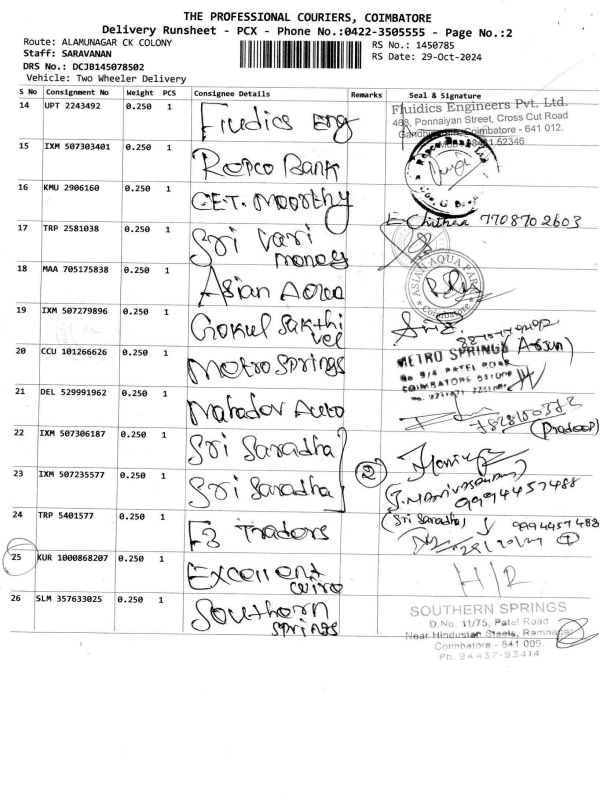 THE PROFESSIONAL COURIERS, COIMBATORE
Delivery Runsheet - PCX - Phone No.:0422-3505555 - Page No.:2
Route: ALAMUNAGAR CK COLONY
RS No.: 1450785
Staff: SARAVANAN
RS Date: 29-Oct-2024
DRS No.: DCJB145078502
Vehicle: Two Wheeler Delivery
S No Consignment No Weight PCS Consignee Details Remarks Seal & Signature
14 UPT 2243492 0.250 1 Fluidics Eng
Fluidics Engineers Pvt. Ltd.
Ponnaiyan Street, Cross Cut Road
Coimbatore - 641 012.
15 IXM 507303401 0.250 1 Repco Bank
16 KMU 2906160 0.250 1 GET. Moorthy
7708702603
17 TRP 2581038 0.250 1 Sri Vari
money
18 MAA 705175838 0.250 1 Asian Aqua
ASIAN AQUA
Coimbatore
19 IXM 507279896 0.250 1 Gokul Sakthi
vel
20 CCU 101266626 0.250 1 Metro Springs
METRO SPRINGS
PATEL ROAD
COIMBATORE
21 DEL 529991962 0.250 1 Mahadev Auto
(Pradeep)
22 IXM 507306187 0.250 1 Sri Saradha
2
23 IXM 507235577 0.250 1 Sri Saradha
9994457488
(Sri Saradha)
24 TRP 5401577 0.250 1 F3 Traders
9994457488
25 KUR 1000868207 0.250 1 Excellent
H/R
26 SLM 357633025 0.250 1 Southern
Springs
SOUTHERN SPRINGS
D.No. 11/75, Patel Road
Near Hindustan Steels, Ramnagar
Coimbatore - 641 009.
Ph. 94437-93414